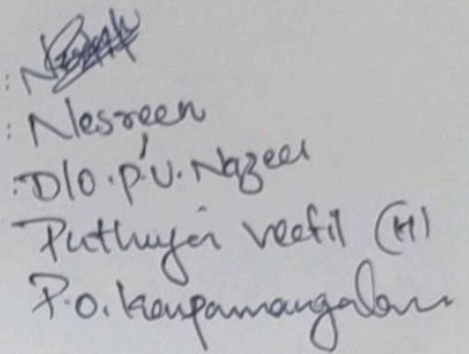 : Nesreen
: D/O. P.V. Nazeer
Puthuya veetil (H)
P.O. Kaupamangalam